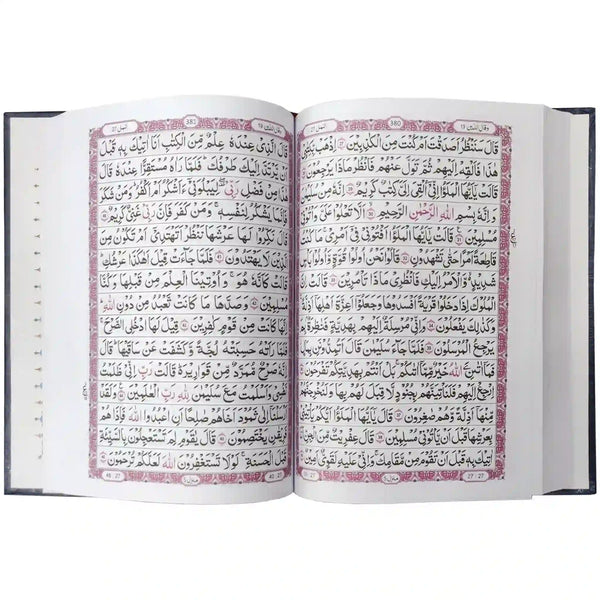 وقال الذين ١٩ 380 النمل 27
قَالَ سَنَنْظُرُ اَصَدَقْتَ اَمْ كُنْتَ مِنَ الْكٰذِبِيْنَ ۝ اِذْهَبْ بِّكِتٰبِيْ
هٰذَا فَاَلْقِهْ اِلَيْهِمْ ثُمَّ تَوَلَّ عَنْهُمْ فَانْظُرْ مَاذَا يَرْجِعُوْنَ ۝
قَالَتْ يٰۤاَيُّهَا الْمَلَؤُا اِنِّيْۤ اُلْقِيَ اِلَيَّ كِتٰبٌ كَرِيْمٌ ۝ اِنَّهٗ مِنْ سُلَيْمٰنَ
وَاِنَّهٗ بِسْمِ اللّٰهِ الرَّحْمٰنِ الرَّحِيْمِ ۝ اَلَّا تَعْلُوْا عَلَيَّ وَاْتُوْنِيْ
مُسْلِمِيْنَ ۝ قَالَتْ يٰۤاَيُّهَا الْمَلَؤُا اَفْتُوْنِيْ فِيْۤ اَمْرِيْ ۚ مَا كُنْتُ
قَاطِعَةً اَمْرًا حَتّٰى تَشْهَدُوْنِ ۝ قَالُوْا نَحْنُ اُولُوْا قُوَّةٍ وَّاُولُوْا بَاْسٍ
شَدِيْدٍ ۙ وَّالْاَمْرُ اِلَيْكِ فَانْظُرِيْ مَاذَا تَاْمُرِيْنَ ۝ قَالَتْ اِنَّ
الْمُلُوْكَ اِذَا دَخَلُوْا قَرْيَةً اَفْسَدُوْهَا وَجَعَلُوْۤا اَعِزَّةَ اَهْلِهَاۤ اَذِلَّةً ۚ
وَكَذٰلِكَ يَفْعَلُوْنَ ۝ وَاِنِّيْ مُرْسِلَةٌ اِلَيْهِمْ بِهَدِيَّةٍ فَنٰظِرَةٌۢ بِمَ
يَرْجِعُ الْمُرْسَلُوْنَ ۝ فَلَمَّا جَآءَ سُلَيْمٰنَ قَالَ اَتُمِدُّوْنَنِ بِمَالٍ ۫
فَمَاۤ اٰتٰىنِۦَ اللّٰهُ خَيْرٌ مِّمَّاۤ اٰتٰىكُمْ ۚ بَلْ اَنْتُمْ بِهَدِيَّتِكُمْ تَفْرَحُوْنَ ۝
اِرْجِعْ اِلَيْهِمْ فَلَنَاْتِيَنَّهُمْ بِجُنُوْدٍ لَّا قِبَلَ لَهُمْ بِهَا وَلَنُخْرِجَنَّهُمْ
مِّنْهَاۤ اَذِلَّةً وَّهُمْ صٰغِرُوْنَ ۝ قَالَ يٰۤاَيُّهَا الْمَلَؤُا اَيُّكُمْ يَاْتِيْنِيْ
بِعَرْشِهَا قَبْلَ اَنْ يَّاْتُوْنِيْ مُسْلِمِيْنَ ۝ قَالَ عِفْرِيْتٌ مِّنَ الْجِنِّ اَنَا
اٰتِيْكَ بِهٖ قَبْلَ اَنْ تَقُوْمَ مِنْ مَّقَامِكَ ۚ وَاِنِّيْ عَلَيْهِ لَقَوِيٌّ اَمِيْنٌ ۝
27 : 27
وقال الذين ١٩ 381 النمل 27
قَالَ الَّذِيْ عِنْدَهٗ عِلْمٌ مِّنَ الْكِتٰبِ اَنَا اٰتِيْكَ بِهٖ قَبْلَ
اَنْ يَّرْتَدَّ اِلَيْكَ طَرْفُكَ ۚ فَلَمَّا رَاٰهُ مُسْتَقِرًّا عِنْدَهٗ قَالَ
هٰذَا مِنْ فَضْلِ رَبِّيْ ۖ لِيَبْلُوَنِيْۤ ءَاَشْكُرُ اَمْ اَكْفُرُ ۚ وَمَنْ شَكَرَ
فَاِنَّمَا يَشْكُرُ لِنَفْسِهٖ ۚ وَمَنْ كَفَرَ فَاِنَّ رَبِّيْ غَنِيٌّ كَرِيْمٌ ۝
قَالَ نَكِّرُوْا لَهَا عَرْشَهَا نَنْظُرْ اَتَهْتَدِيْۤ اَمْ تَكُوْنُ مِنَ
الَّذِيْنَ لَا يَهْتَدُوْنَ ۝ فَلَمَّا جَآءَتْ قِيْلَ اَهٰكَذَا عَرْشُكِ ۚ
قَالَتْ كَاَنَّهٗ هُوَ ۚ وَاُوْتِيْنَا الْعِلْمَ مِنْ قَبْلِهَا وَكُنَّا
مُسْلِمِيْنَ ۝ وَصَدَّهَا مَا كَانَتْ تَّعْبُدُ مِنْ دُوْنِ اللّٰهِ ۚ
اِنَّهَا كَانَتْ مِنْ قَوْمٍ كٰفِرِيْنَ ۝ قِيْلَ لَهَا ادْخُلِي الصَّرْحَ ۚ
فَلَمَّا رَاَتْهُ حَسِبَتْهُ لُجَّةً وَّكَشَفَتْ عَنْ سَاقَيْهَا ۚ قَالَ
اِنَّهٗ صَرْحٌ مُّمَرَّدٌ مِّنْ قَوَارِيْرَ ۚ قَالَتْ رَبِّ اِنِّيْ ظَلَمْتُ
نَفْسِيْ وَاَسْلَمْتُ مَعَ سُلَيْمٰنَ لِلّٰهِ رَبِّ الْعٰلَمِيْنَ ۝ وَلَقَدْ
اَرْسَلْنَاۤ اِلٰى ثَمُوْدَ اَخَاهُمْ صٰلِحًا اَنِ اعْبُدُوا اللّٰهَ فَاِذَا هُمْ
فَرِيْقٰنِ يَخْتَصِمُوْنَ ۝ قَالَ يٰقَوْمِ لِمَ تَسْتَعْجِلُوْنَ بِالسَّيِّئَةِ
قَبْلَ الْحَسَنَةِ ۚ لَوْلَا تَسْتَغْفِرُوْنَ اللّٰهَ لَعَلَّكُمْ تُرْحَمُوْنَ ۝
46 : 27 40 : 27